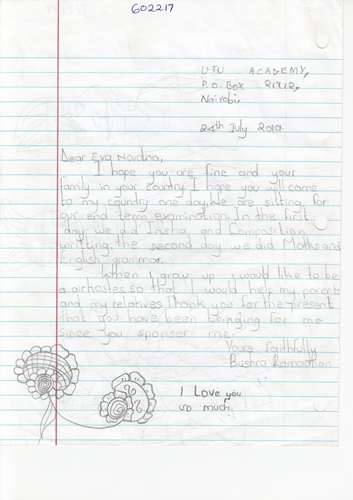 602217
UTU ACADEMY,
P.O. Box 21712,
Nairobi
24th July 2019
Dear Eva
I hope you are fine and your
family in your country. I hope you will come
to my country one day. We are sitting for
our end term examination. In the first
day we did Insha and Composition
writting, the second day we did Maths and
English grammar.
When I grow up I would like to be
a airhostes so that I would help my parent
and my relatives. Thank you for the present
that you have been bringing for me
since you sponser me.
Yours Faithfully
Bushra Ramadhan
I Love you
so much.